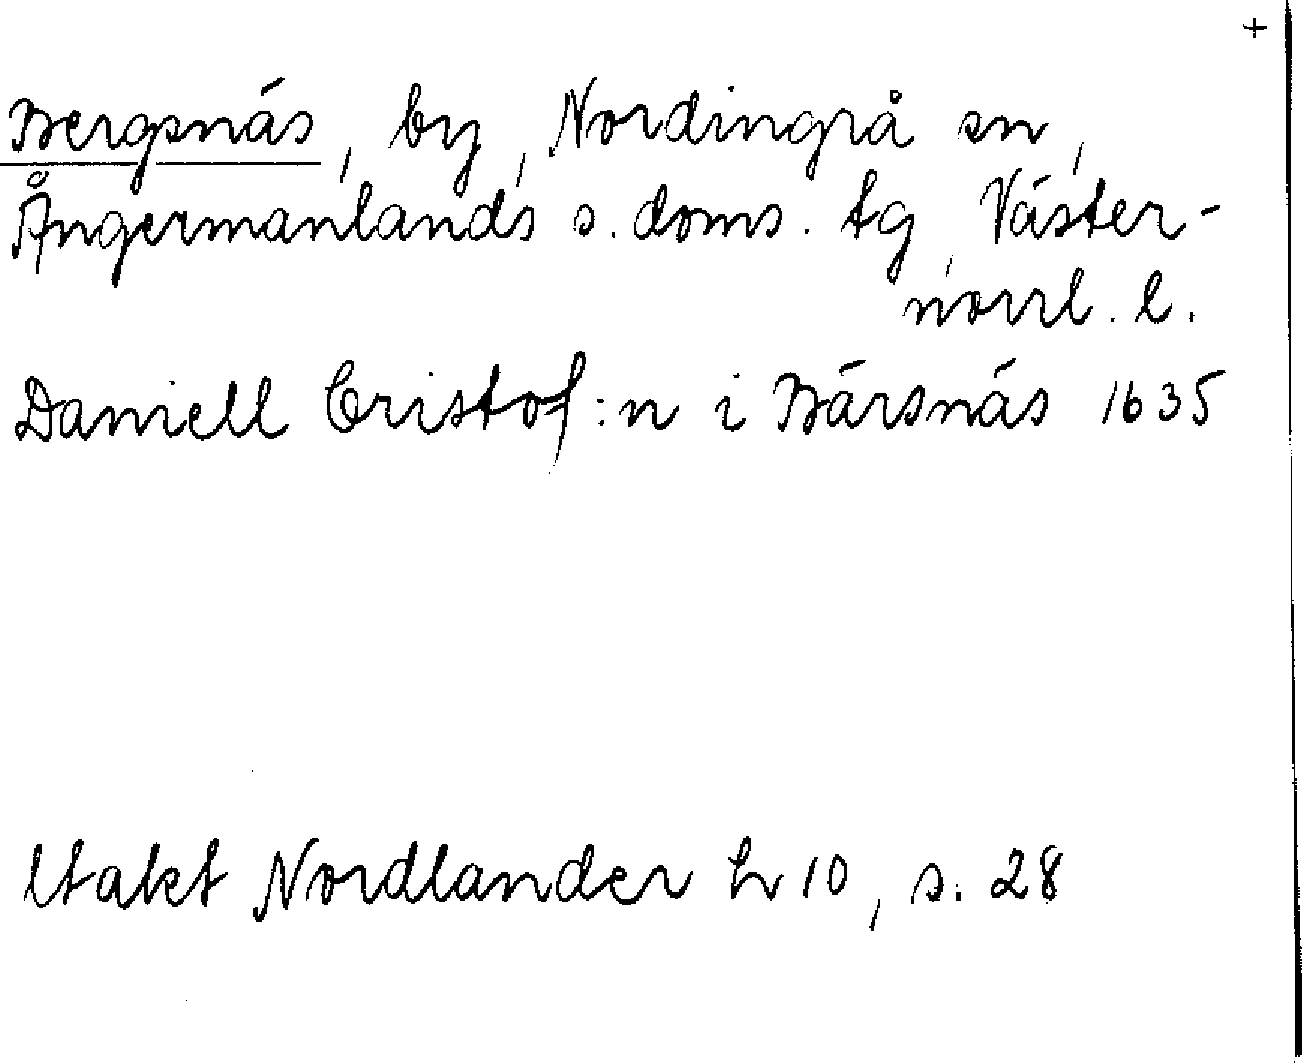 +
Bergsnäs, by, Nordingrå sn,
Ångermanlands s. doms. tg, Väster-
norrl. l.
Daniell Cristof:n i Bärsnäs 1635
Utakt Nordlander h 10, s. 28